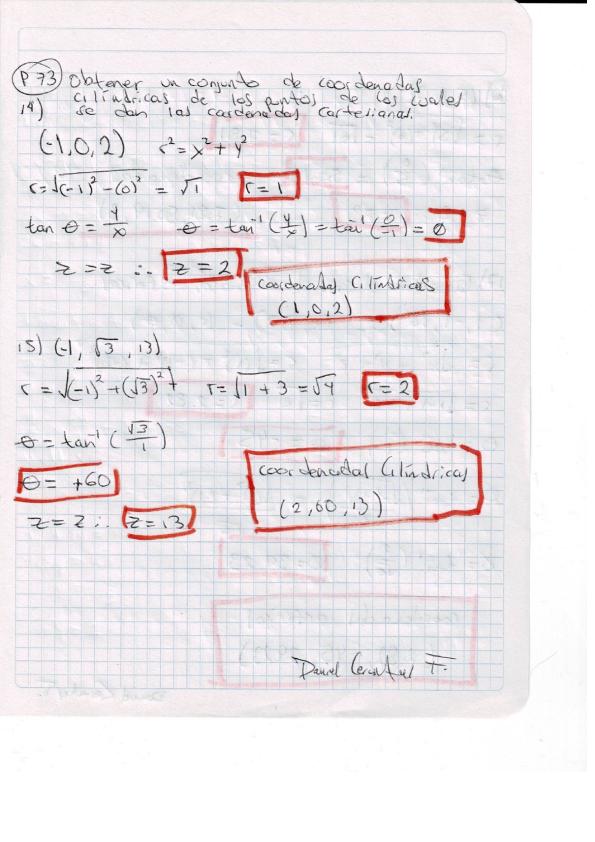 P 73) Obtener un conjunto de coordenadas
14) cilíndricas de los puntos de los cuales
se dan las coordenadas cartesianas.
(-1, 0, 2) r² = x² + y²
r = √(-1)² - (0)² = √1 r = 1
tan θ = y/x θ = tan⁻¹ (y/x) = tan⁻¹ (0/-1) = 0
z = z ∴ z = 2
Coordenadas Cilíndricas
(1, 0, 2)
15) (-1, √3, 13)
r = √(-1)² + (√3)² r = √1 + 3 = √4 r = 2
θ = tan⁻¹ (√3/1)
θ = +60
z = z ∴ z = 13
Coordenadas Cilíndricas
(2, 60, 13)
Daniel F.